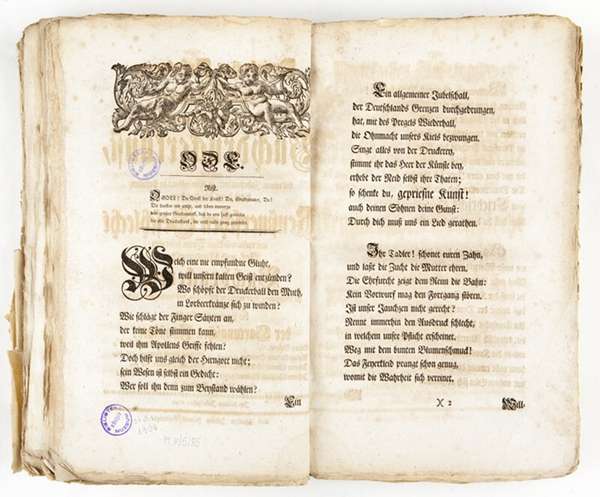 ODE.
Rist.
Welch eine nie empfundne Gluht,
will unsern kalten Geist entzünden?
Wo schöpft der Druckerball den Muth,
in Lorbeerkränze sich zu winden?
Wie schlägt der Finger Säyten an,
der keine Töne stimmen kann,
weil ihm Apollens Griffe fehlen?
Doch hilft uns gleich der Hirngott nicht;
sein Wesen ist selbst ein Gedicht:
Wer soll ihn denn zum Beystand wählen?
Ein
M.V/5/85
Ein allgemeiner Jubelschall,
der Deutschlands Grenzen durchgedrungen,
hat, mit des Pregels Wiederhall,
die Ohnmacht unsers Kiels bezwungen.
Singt alles von der Druckerey,
stimmt ihr das Heer der Künste bey,
erhebt der Neid selbst ihre Thaten;
so schenke du, gepriesne Kunst!
auch deinen Söhnen deine Gunst:
Durch dich muß uns ein Lied gerathen.
Ihr Tadler! schonet euren Zahn,
und laßt die Zucht die Mutter ehren.
Die Ehrfurcht zeigt dem Reim die Bahn:
Kein Vorwurf mag den Fortgang stören.
Ist unser Jauchzen nicht gerecht?
Nennt immerhin den Ausdruck schlecht,
in welchem unsre Pflicht erscheinet.
Weg mit dem bunten Blumenschmuck!
Das Feyerkleid prangt schon genug,
womit die Wahrheit sich vereinet.
X 2
Will-